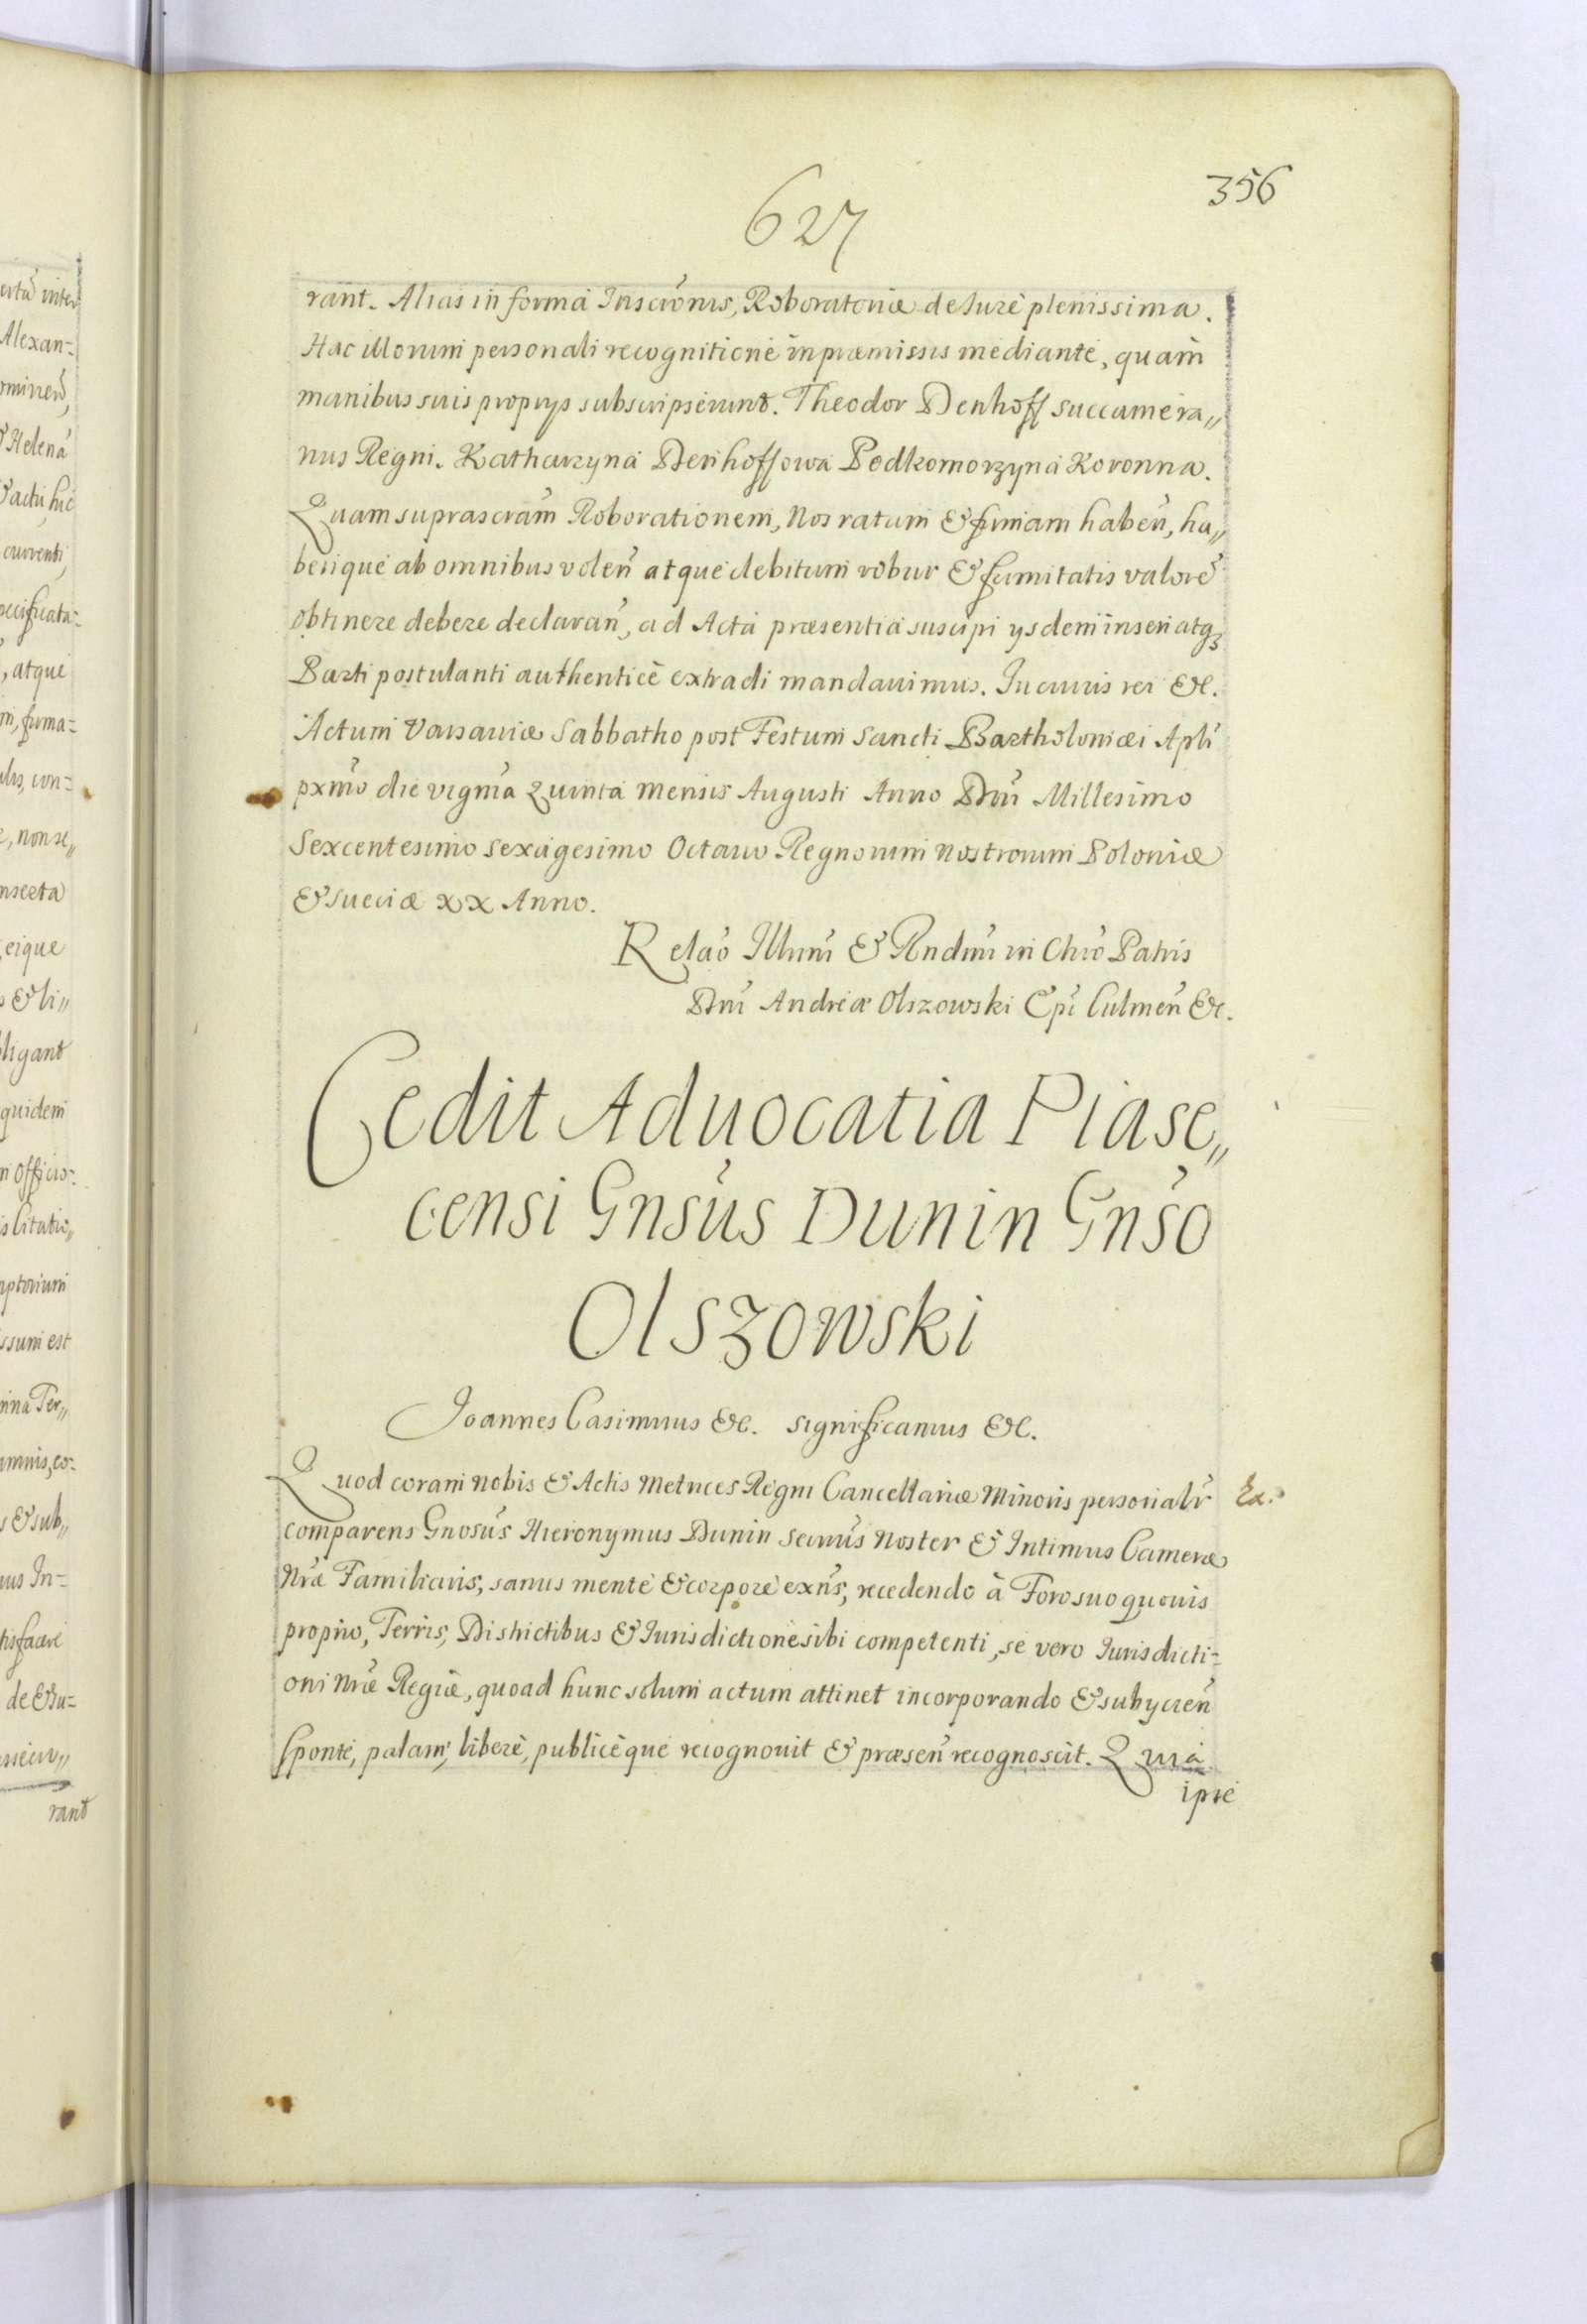 356
627
rant. Alias in forma Inscrõnis, Roboratoriæ de Iure plenissima.
Hac illorum personali recognitione in præmissis mediante, quam
manibus suis proprys subscripserunt. Theodor Denhoff succamera„
nus Regni. Katharzyna Denhoffowa Podkomorzyna Koronna.
Quam suprascram̃ Roborationem, Nos ratum & firmam habeñ, ha„
berique ab omnibus voleñ atque debitum robur & firmitatis valorẽ
obtinere debere declarañ, ad Acta præsentia suscipi ysdem inseri atq3
Parti postulanti authenticè extradi mandauimus. In cuius rei &c.
Actum Varsauiæ Sabbatho post Festum Sancti Bartholomæi Apli
pxmo die vigma Quinta Mensis Augusti Anno Dni Millesimo
Sexcentesimo sexagesimo Octauo Regnorum Nostrorum Poloniæ
& Sueciæ xx Anno.
Relaõ Illmi & Rndmi in Chro Patris
Dni Andreæ Olszowski Epi Culmeñ &c.
Cedit Aduocatia Piase„
censi Gnsus Dunin Gnso
Olszowski
Joannes Casimirus &c. significamus &c.
Quod coram nobis & Actis Metrices Regni Cancellariæ Minoris personalr
Ex.
comparens Gnosus Hieronymus Dunin Secrius Noster & Intimus Cameræ
Nræ Familiaris, sanus mente & corpore exns, recedendo à Foro suo quouis
proprio, Terris, Districtibus & Iurisdictione sibi competenti, se vero Iurisdicti-
oni Nræ Regiæ, quoad hunc solum actum attinet incorporando & subycieñ
sponte, palam, libere, publicèque recognouit & præseñ recognoscit. Quia
ipse